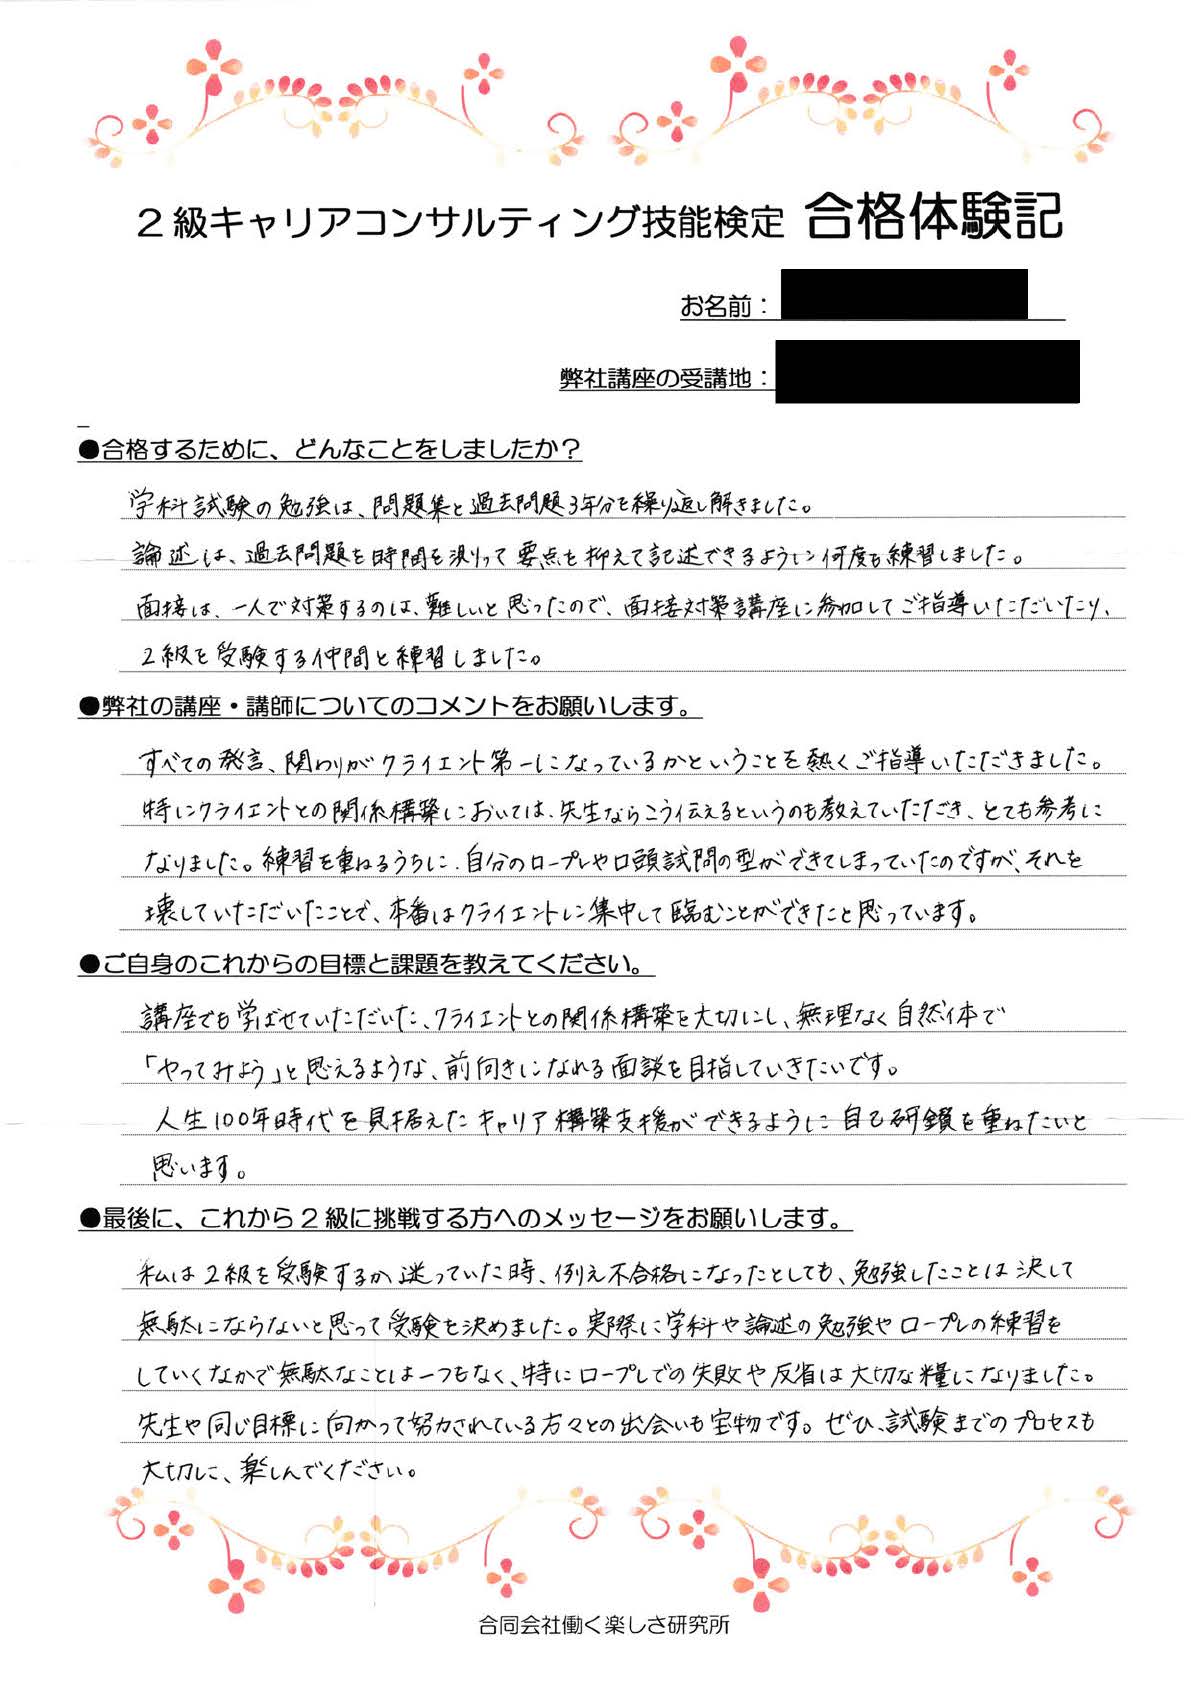 2級キャリアコンサルティング技能検定 合格体験記
お名前：
弊社講座の受講地：
●合格するために、どんなことをしましたか？
学科試験の勉強は、問題集と過去問題3年分を繰り返し解きました。
論述は、過去問題を時間を測って要点を抑えて記述できるように何度も練習しました。
面接は、一人で対策するのは、難しいと思ったので、面接対策講座に参加してご指導いただいたり、
2級を受験する仲間と練習しました。
●弊社の講座・講師についてのコメントをお願いします。
すべての発言、関わりがクライエント第一になっているかということを熱くご指導いただきました。
特にクライエントとの関係構築においては、先生ならこう伝えるというのも教えていただき、とても参考に
なりました。練習を重ねるうちに、自分のロープレや口頭試問の型ができてしまっていたのですが、それを
壊していただいたことで、本番はクライエントに集中して臨むことができたと思っています。
●ご自身のこれからの目標と課題を教えてください。
講座でも学ばせていただいた、クライエントとの関係構築を大切にし、無理なく自然体で
「やってみよう」と思えるような、前向きになれる面談を目指していきたいです。
人生100年時代を見据えたキャリア構築支援ができるように自己研鑽を重ねたいと
思います。
●最後に、これから2級に挑戦する方へのメッセージをお願いします。
私は2級を受験するか迷っていた時、例え不合格になったとしても、勉強したことは決して
無駄にならないと思って受験を決めました。実際に学科や論述の勉強やロープレの練習を
していくなかで無駄なことは一つもなく、特にロープレでの失敗や反省は大切な糧になりました。
先生や同じ目標に向かって努力されている方々との出会いも宝物です。ぜひ、試験までのプロセスも
大切に、楽しんでください。
合同会社働く楽しさ研究所